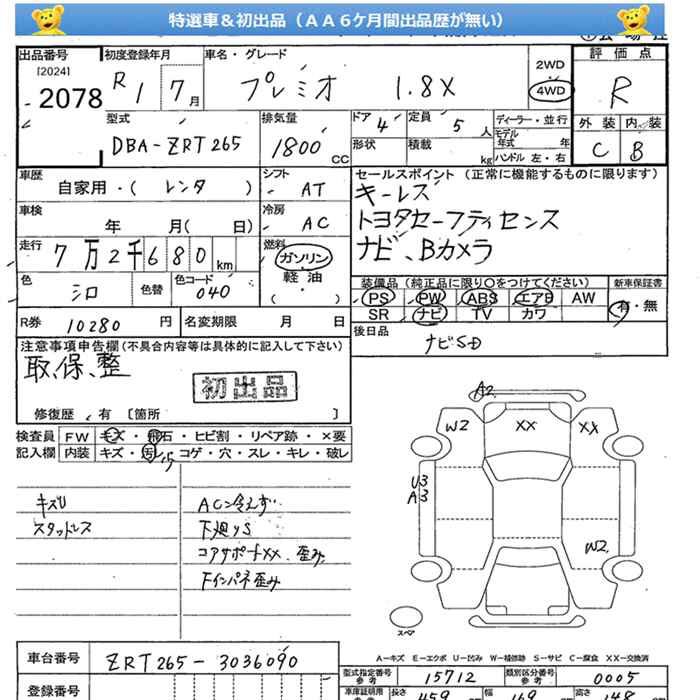 特選車＆初出品（ＡＡ６ケ月間出品歴が無い）
出品番号 初度登録年月 車名・グレード 評価点
[2024]
2078 R1 7月 プレミオ 1.8X 2WD 4WD R
型式 排気量 ドア 4 定員 5人 ディーラー・並行 外装 内装
DBA-ZRT265 1800cc 形状 積載 kg モデル年式 年 ハンドル 左・右 C B
車歴 シフト セールスポイント（正常に機能するものに限ります）
自家用・（レンタ） AT キーレス
車検 冷房 トヨタセーフティセンス
年 月（ 日） AC ナビ、Bカメラ
走行 7万2千680km 燃料 ガソリン
軽油
・
（ ）
色 シロ 色替 色コード 040
装備品（純正品に限り〇をつけてください） 新車保証書
PS PW ABS エアB AW 有・無
SR ナビ TV カワ
R券 10280円 名変期限 月 日 後日品
ナビSD
注意事項申告欄（不具合内容等は具体的に記入して下さい）
取、保、整
初出品
修復歴 有 〔箇所 〕
検査員 FW キズ・飛石・ヒビ割・リペア跡・×要
記入欄 内装 キズ・汚・コゲ・穴・スレ・キレ・破レ
キズU ACン冷えず
スタッドレス 下廻りS
コアサポートXX、歪み
Fインパネ歪み
A2
W2 XX XX
U3
A3
W2
スペア
A－キズ E－エクボ U－凹み W－補修跡 S－サビ C－腐食 XX－交換済
車台番号 ZRT265-3036090
型式指定番号 参考 15712 類別区分番号 参考 0005
登録番号 車庫証明用 参考 長さ 459 幅 169 高さ 148